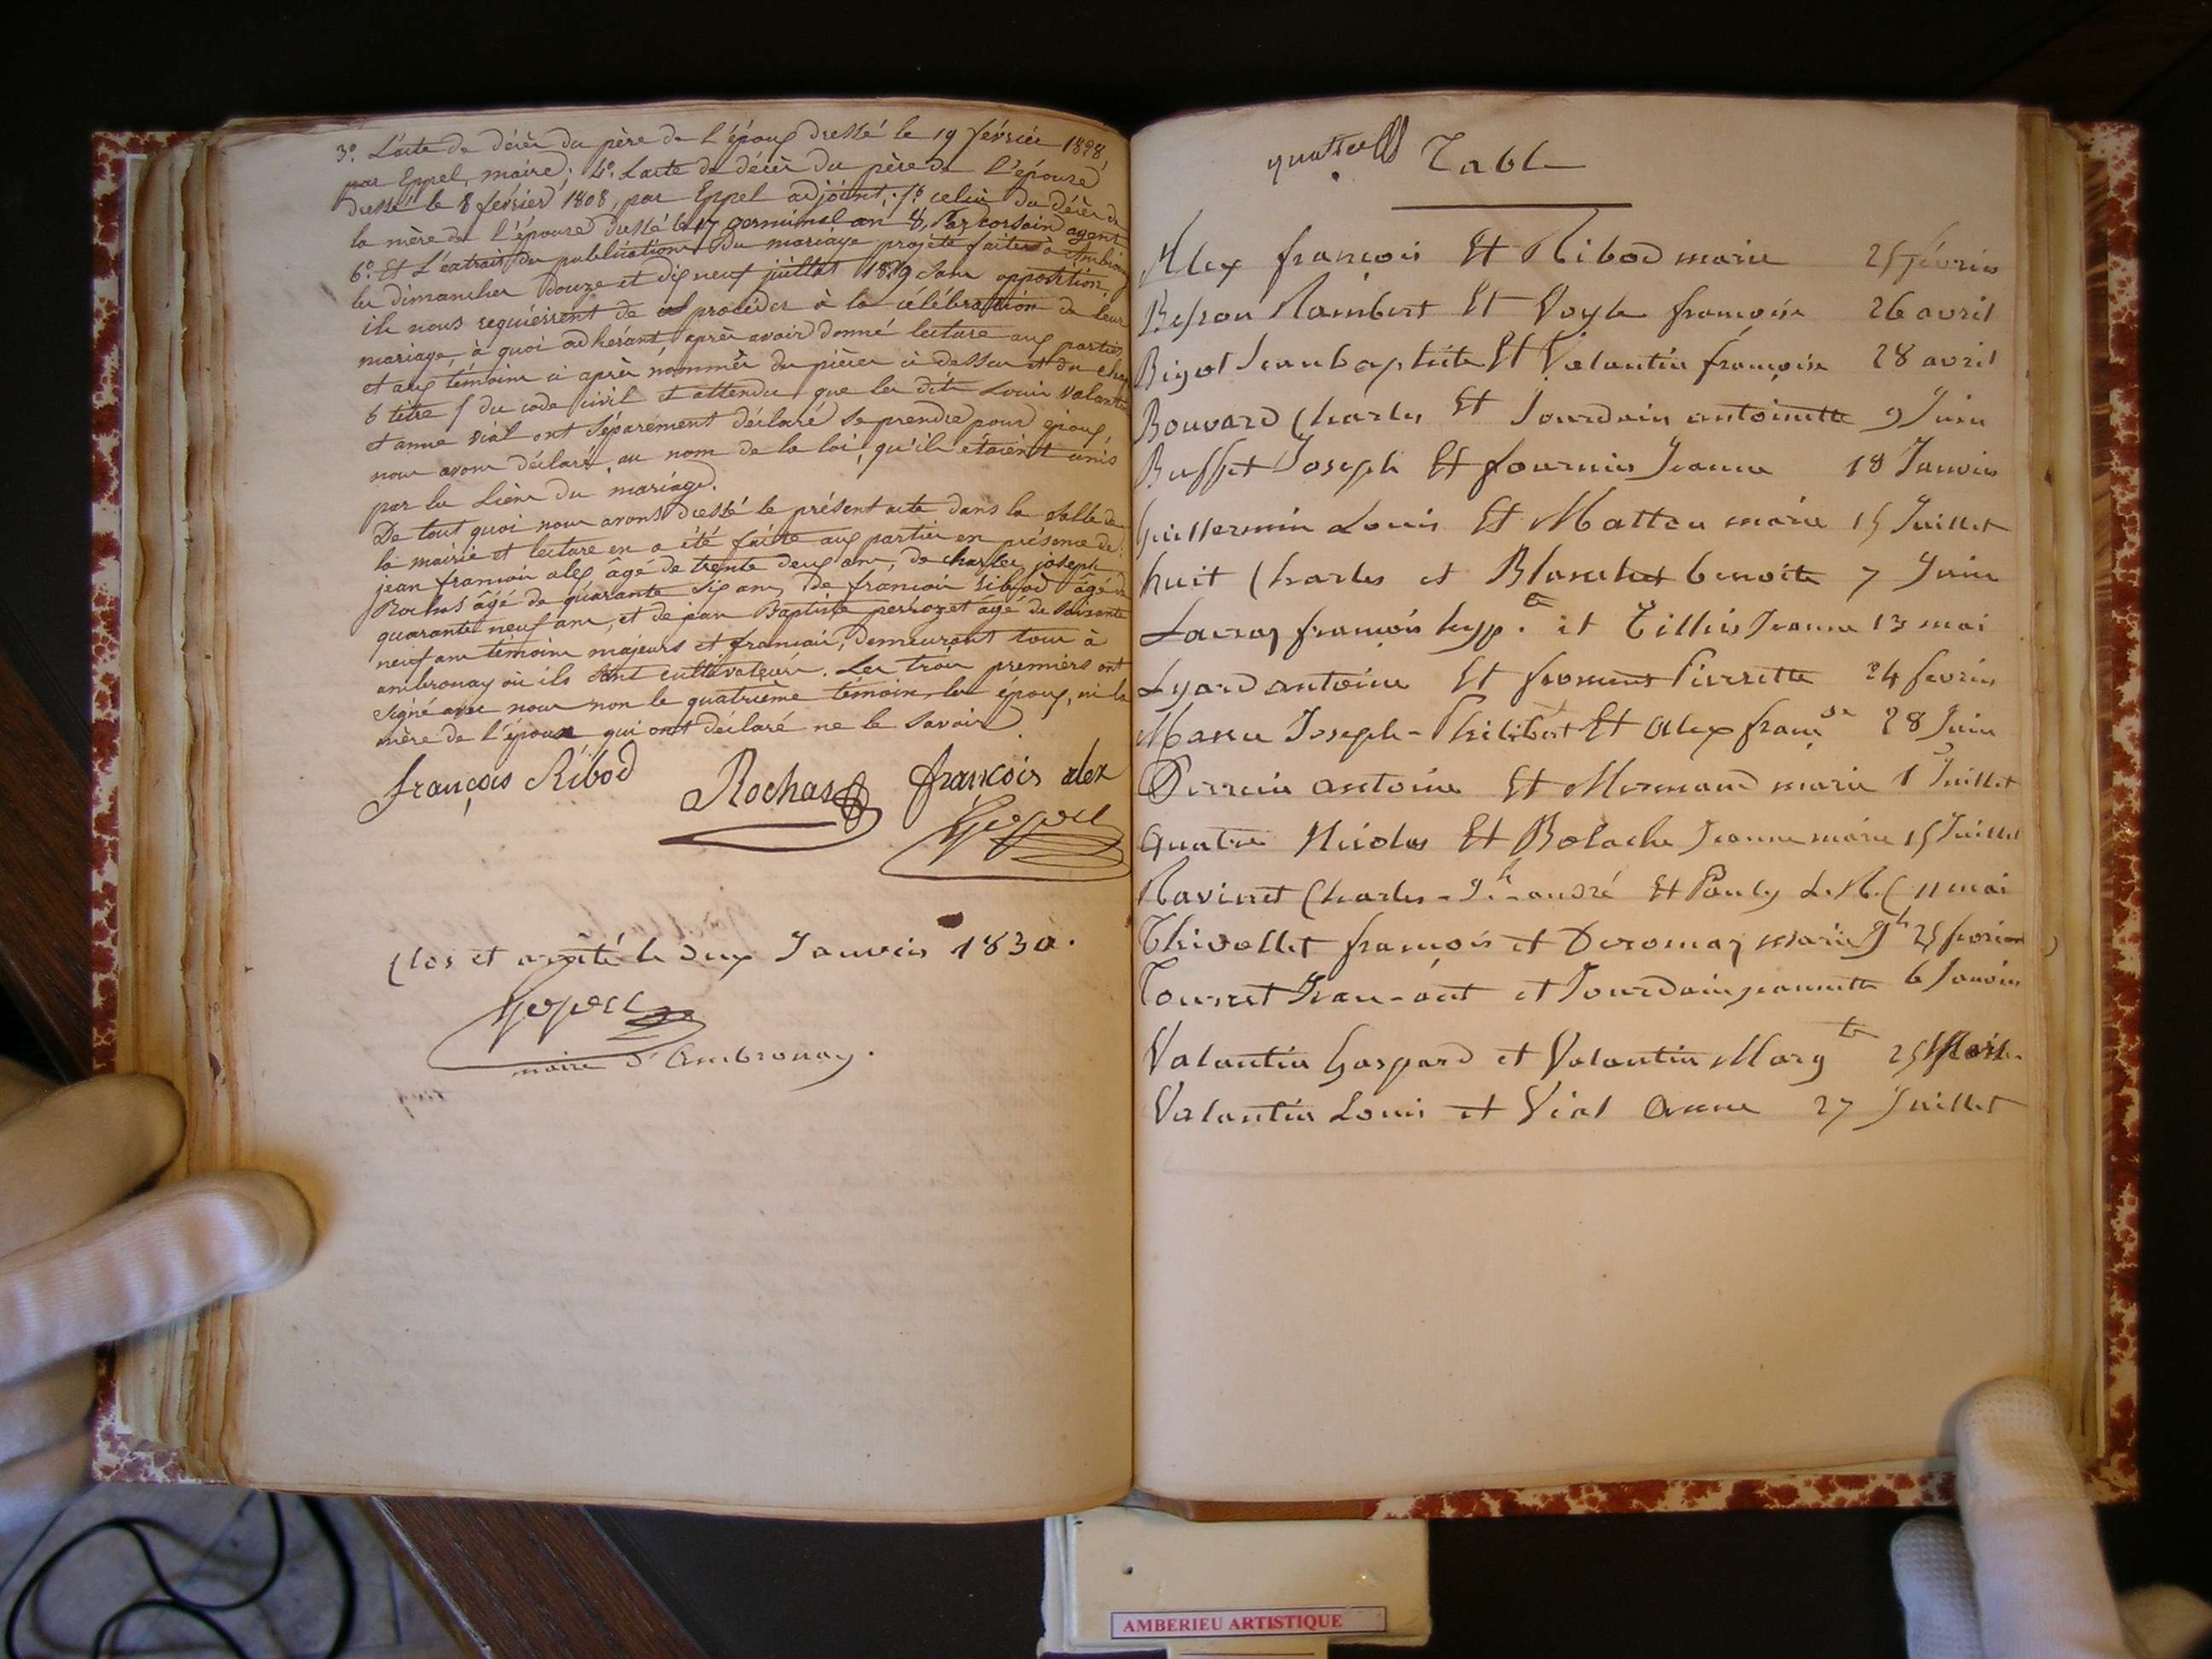 3º. L'acte de décès du père de l'époux dressé le 19 février 1828,
par Eppel, maire; 4º. L'acte de décès du père de l'épouse
dressé le 8 février 1808, par Eppel adjoint; 5º celui du décès de
la mère de l'épouse dressé le 17 germinal an 8, Par corsain agent
6º. Et L'extrait des publications du mariage projeté faites à Ambronay
les dimanches douze et dix neuf juillet 1829 sans opposition,
ils nous requièrent de procéder à la célébration de leur
mariage, à quoi adhérant, après avoir donné lecture aux parties
et aux témoins ci après nommés des pièces ci dessus et du chap
6 titre 5 du code civil et attendu que les dits Louis Valantin
et anne vial ont séparément déclaré se prendre pour époux,
nous avons déclaré, au nom de la loi, qu'ils étaient unis
par les Liens du mariage.
De tout quoi nous avons dressé le présent acte dans la salle de
la mairie et lecture en a été faite aux parties en présence de:
jean françois alex âgé de trente deux ans, de charles joseph
Rochas âgé de quarante six ans, de françois ribod âgé de
quarante neuf ans, et de jean Baptiste perrozet âgé de soixante
neuf ans témoins majeurs et français, demeurant tous à
ambronay où ils sont cultivateurs. Les trois premiers ont
signé avec nous non le quatrième témoin, les époux, ni la
mère de l'époux qui ont déclaré ne le savoir.
françois Ribod Rochas françois alex
Eppel
Clos et arrêté le deux Janvier 1830.
Eppel
maire d'Ambronay.
Table
Alex françois Et Ribod marie 25 février
Besson Rambert Et Voyle françoise 26 avril
Bigot Jean baptiste Et Valantin françoise 28 avril
Bouvard Charles Et Jourdain antoinette 9 Juin
Buffet Joseph Et fournier Jeanne 18 Janvier
Guillermin Louis Et Matteu marie 15 Juillet
huit Charles et Blanchet benoite 7 Juin
Lavray françois hyp.te et Tillier Jeanne 13 mai
Lyard antoine Et froment Pierrette 24 février
Joseph-Philibert Et Alex franç.se 28 Juin
Perrein antoine Et Mermand marie 1 Juillet
Quatre Nicolas Et Bolache Jeanne marie 15 Juillet
Ravinet Charles-Jh-andré Et Pauly L. M. C 11 mai
Thivollet françois et Deromaz marie Jh 25 février
Tournet Jean-ant et Jourdain jeannette 6 Janvier
Valantin Gaspard et Valantin Margte 25
Valantin Louis et Vial Anne 27 Juillet
AMBERIEU ARTISTIQUE